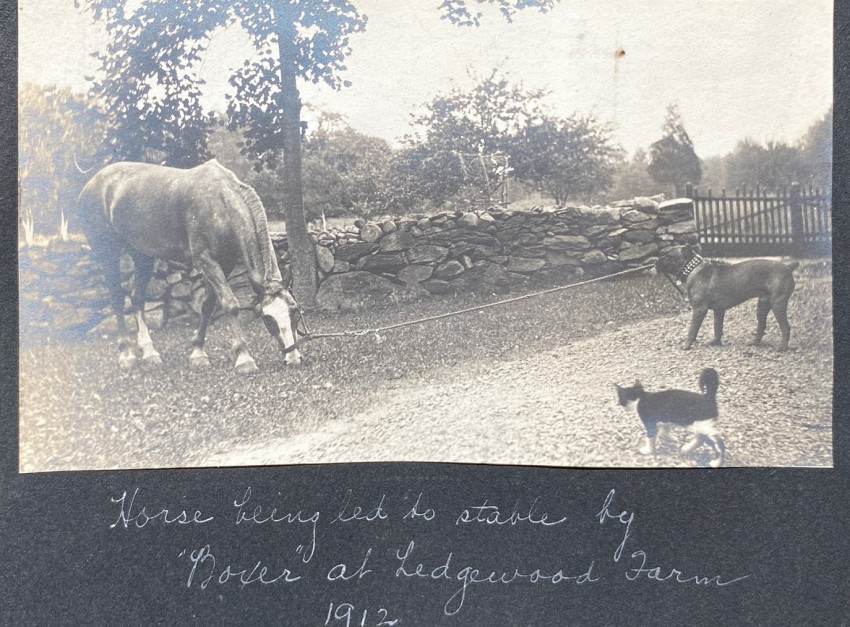 Horse being led to stable by
"Boxer" at Ledgewood Farm
1912